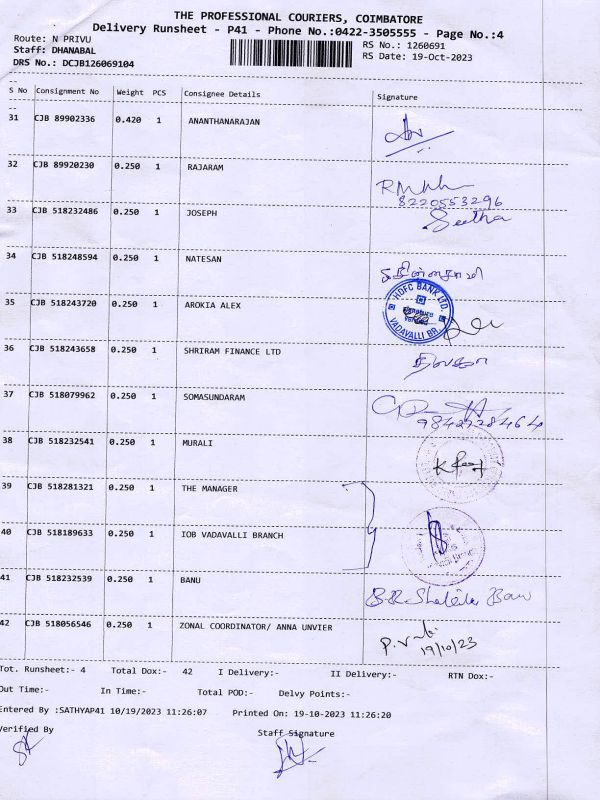 THE PROFESSIONAL COURIERS, COIMBATORE
Delivery Runsheet - P41 - Phone No.:0422-3505555 - Page No.:4
Route: N PRIVU
RS No.: 1260691
Staff: DHANABAL
RS Date: 19-Oct-2023
DRS No.: DCJB126069104
S No Consignment No Weight PCS Consignee Details Signature
31 CJB 89902336 0.420 1 ANANTHANARAJAN
32 CJB 89920230 0.250 1 RAJARAM
8220553296
33 CJB 518232486 0.250 1 JOSEPH Seetha
34 CJB 518248594 0.250 1 NATESAN
35 CJB 518243720 0.250 1 AROKIA ALEX HDFC BANK LTD. Signature Verified VADAVALLI BR
36 CJB 518243658 0.250 1 SHRIRAM FINANCE LTD
37 CJB 518079962 0.250 1 SOMASUNDARAM
9842728464
38 CJB 518232541 0.250 1 MURALI
39 CJB 518281321 0.250 1 THE MANAGER
40 CJB 518189633 0.250 1 IOB VADAVALLI BRANCH
41 CJB 518232539 0.250 1 BANU
42 CJB 518056546 0.250 1 ZONAL COORDINATOR/ ANNA UNVIER
19/10/23
Tot. Runsheet:- 4 Total Dox:- 42 I Delivery:- II Delivery:- RTN Dox:-
Out Time:- In Time:- Total POD:- Delvy Points:-
Entered By :SATHYAP41 10/19/2023 11:26:07 Printed On: 19-10-2023 11:26:20
Verified By Staff Signature